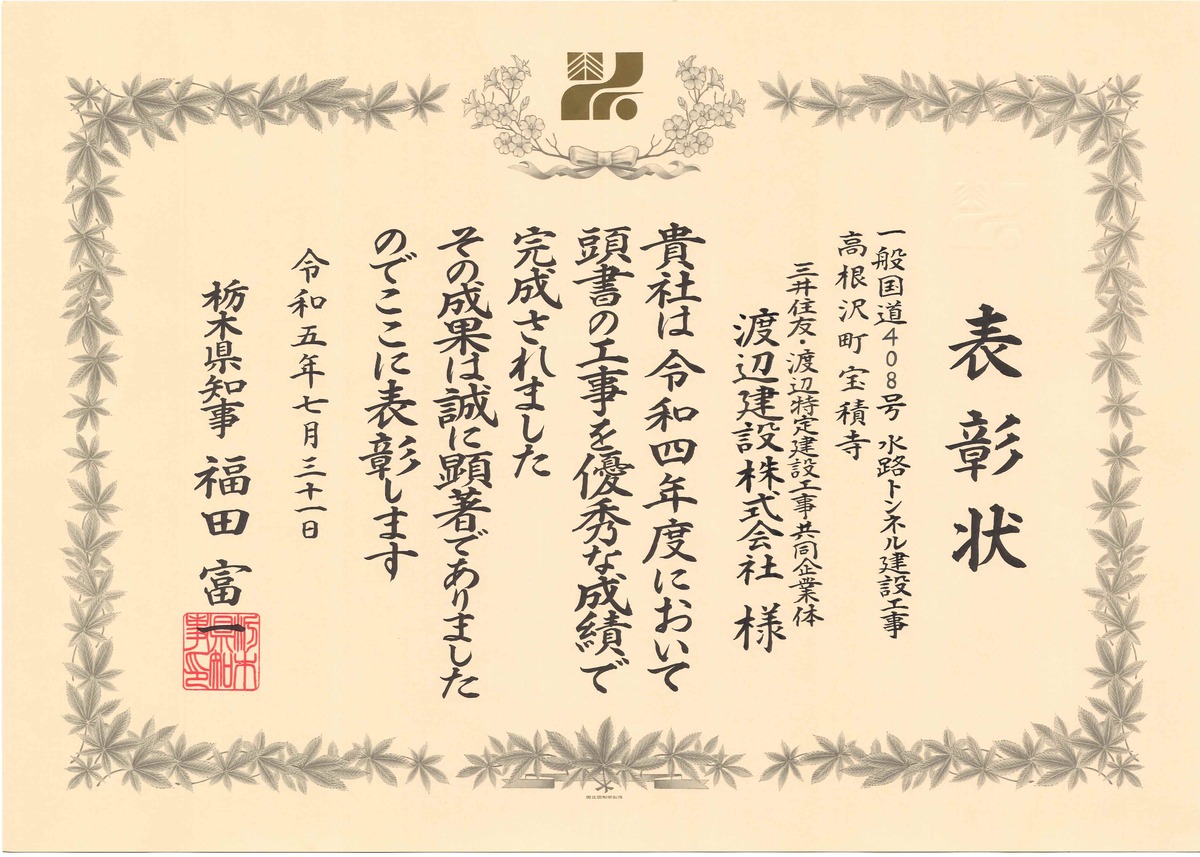 表彰状
一般国道408号 水路トンネル建設工事
高根沢町宝積寺
三井住友・渡辺特定建設工事共同企業体
渡辺建設株式会社 様
貴社は令和四年度において
頭書の工事を優秀な成績で
完成されました
その成果は誠に顕著でありました
のでここに表彰します
令和五年七月三十一日
栃木県知事 福田富一
栃木県知事印